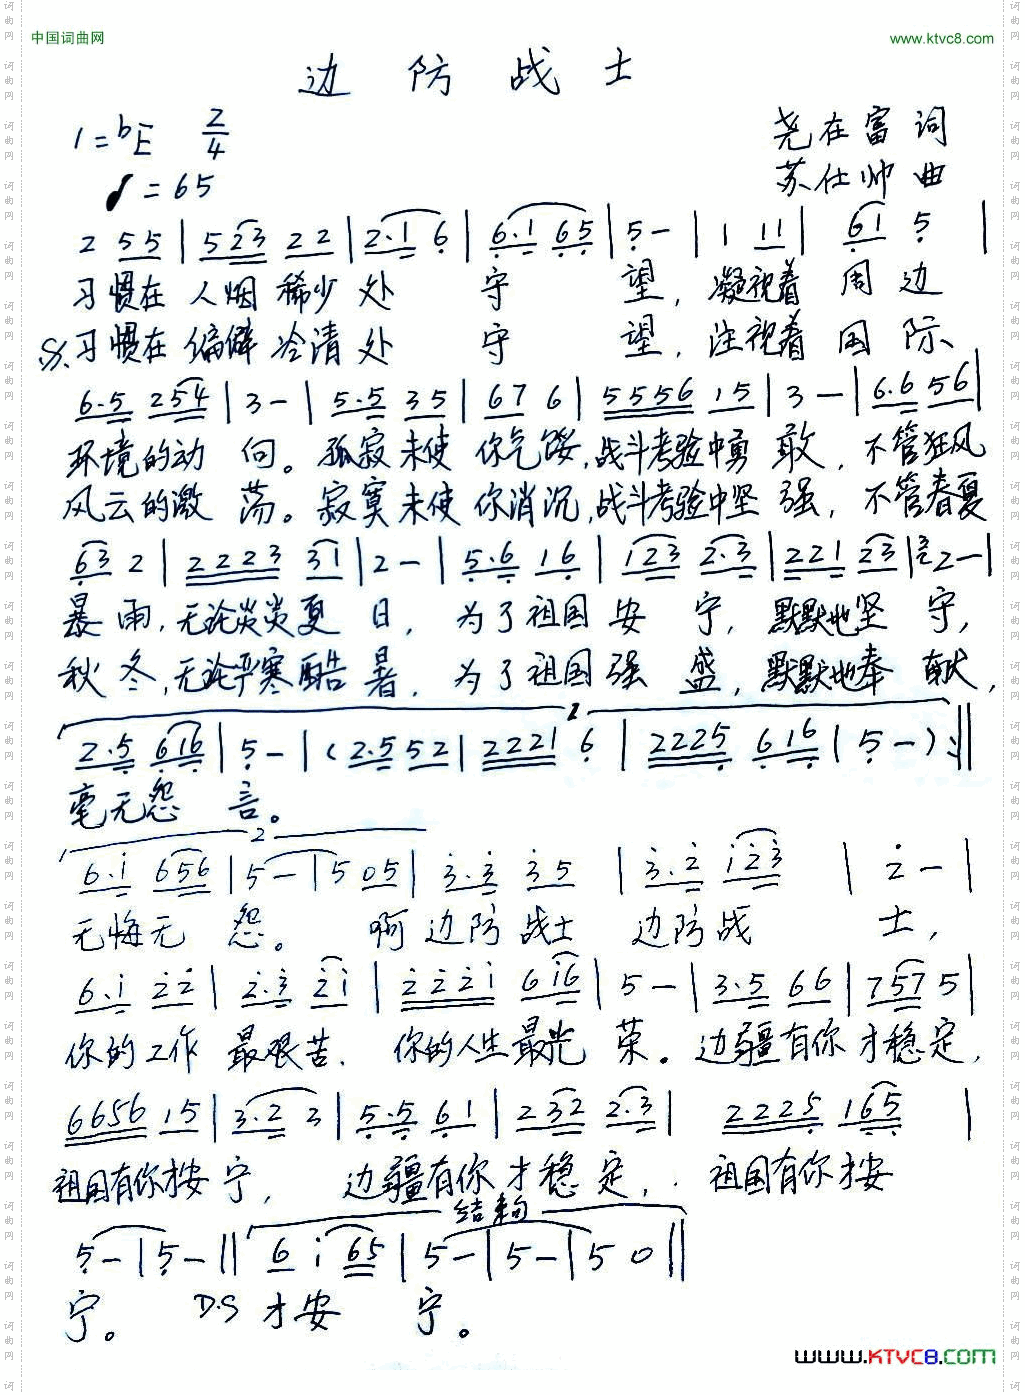 中国词曲网 www.ktvc8.com
边 防 战 士
1=bE 2/4
尧在富 词
♩=65
苏仕帅 曲
2 55 | 523 22 | 2·1 6 | 6·1 65 | 5 - | 1 11 | 61 5 |
习惯在 人烟稀少处 守 望,凝视着 周 边
习惯在 偏僻冷清处 守 望,注视着 国 际、
6·5 254 | 3 - | 5·5 35 | 67 6 | 5556 15 | 3 - | 6·6 56 |
环境的动 向。孤寂未使 你气馁,战斗考验中勇 敢,不管狂风
风云的激 荡。寂寞未使 你消沉,战斗考验中坚 强,不管春夏
63 2 | 2223 31 | 2 - | 5·6 16 | 123 2·3 | 221 23 | 2 - |
暴 雨,无论炎炎夏 日, 为了祖国 安 宁, 默默地坚 守,
秋 冬,无论严寒酷 暑, 为了祖国强 盛,默默地奉 献,
2·5 616 | 5 - | (2·5 52 | 2221 6 | 2225 616 | 5 -) :||
毫无怨 言。
2
6·i 656 | 5 - | 5 05 | 3·3 35 | 3·2 i23 | 2 - |
无悔无 怨。 啊 边防 战士 边防战 士,
6·i 22 | 2·3 2i | 222i 6i6 | 5 - | 3·5 66 | 757 5 |
你的工作 最艰苦、 你的人生最光 荣。边疆有你 才稳定,
6656 15 | 3·2 3 | 5·5 61 | 232 2·3 | 2225 165 |
祖国有你才安 宁, 边疆有你 才稳 定, 祖国有你才安
结束句
5 - | 5 - || 6 i 65 | 5 - | 5 - | 5 0 ||
宁。 D.S 才安 宁。
www.KTVC8.com